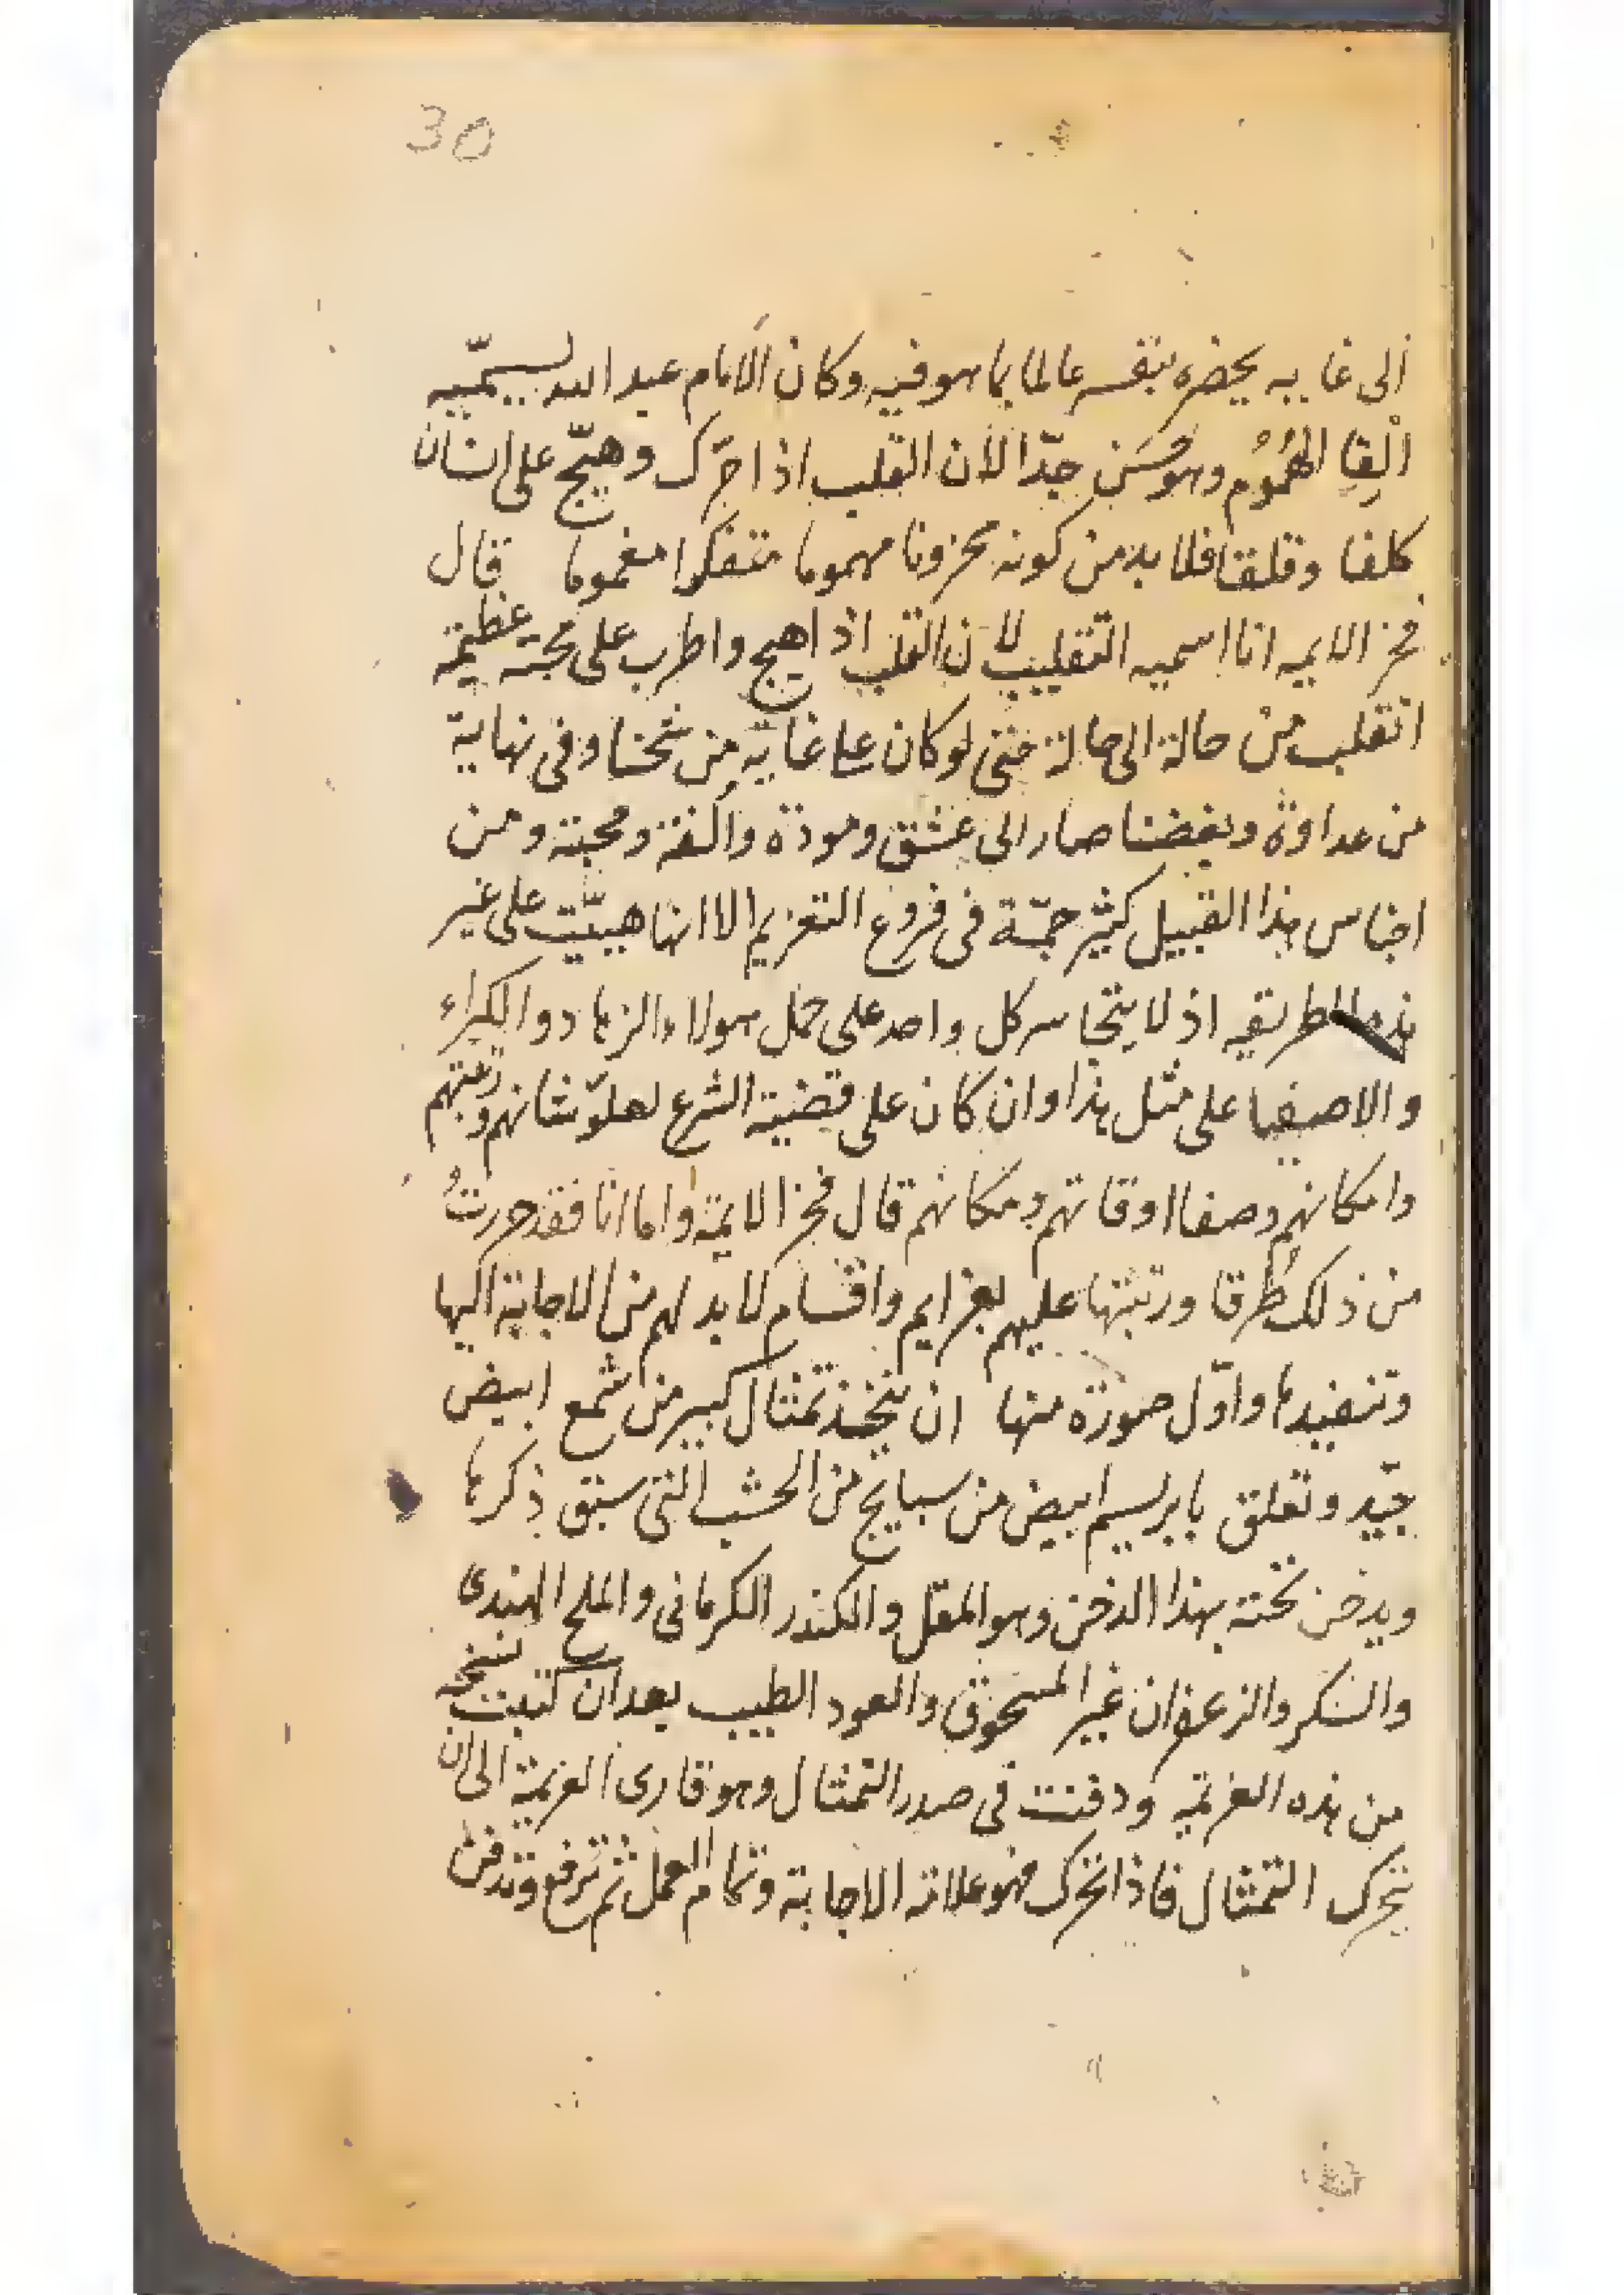 30
الى غايبه يحضره بنفسه عالما بما هو فيه وكان الامام عبد الله يسميّه
اَلِقا الهُمُوُم وهو حَسَن جدّا لان القلب اذا حرّك وهيّج على انسان
كلفا وقلقا فلا بد من كونه محزونا مهموما متفكرا مغموما قال
فخر الايمه انا اسميه التقليب لان القلب اذا هيج واطرب على محبة عظيمة
انقلب من حالة الى حالة حتى لو كان على غاية من شحنا وفى نهاية
من عداوة وبغضنا صار الى عشق ومودة والفة ومحبة ومن
اجناس هذا القبيل كثير جمّة فى فروع التعزيم الا انها هيبّت على غير
هذه الطريقه اذ لا يتجاسر كل واحد على حمل هولاء الزهاد والكبراء
والاصفيا على مثل هذا وان كان على قضية الشرع لعلوّ شانهم ورتبتهم
وامكانهم وصفا اوقاتهم ومكانهم قال فخر الايمة واما انا فقد حررتُ
من ذلك طُرقا ورتبتها عليهم بعزايم واقسام لا بد لهم من الاجابة اليها
وتنفيدها واوّل صورة منها ان يتخذ تمثال كبير من شمع ابيض
جيّد وتعلق بابريسم ابيض من سبايج من الخشب التى سبق ذكرها
ويدخن تحته بهذا الدخن وهو المقل والكندر الكرمانى والملح الهندى
والسكر والزعفران غير المسحوق والعود الطيب بعد ان كتبت نسخه
من هذه العزيمة ودفنت فى صدر التمثال وهو قارى العزيمة الى ان
يتحرك التمثال فاذا تحرك فهو علامة الاجابة وتمام العمل ثم ترفع وتدفن